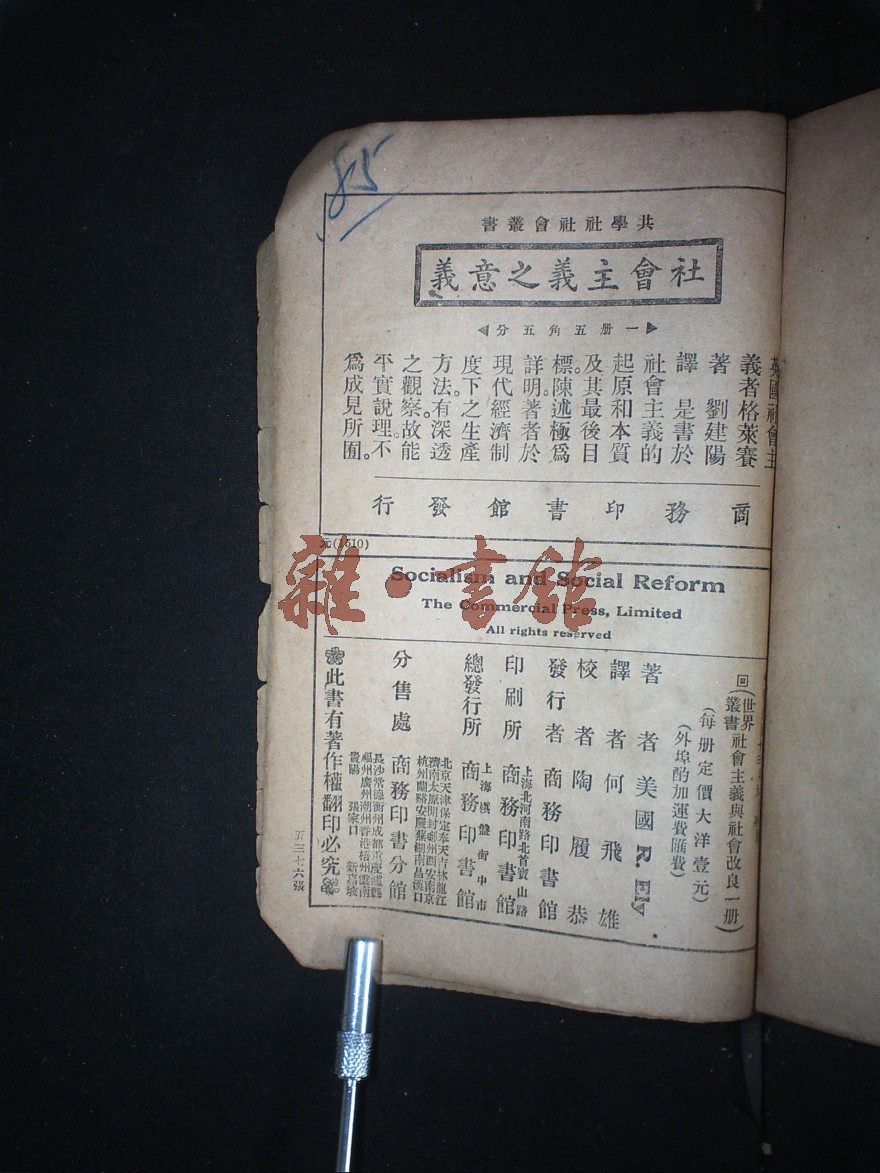 85
共學社社會叢書
社會主義之意義
一册五角五分
英國社會主
義者格萊賽
著 劉建陽
譯 是書於
社會主義的
起原和本質
及其最後目
標。陳述極爲
詳明。著者於
現代經濟制
度下之生產
方法。有深透
之觀察。故能
平實說理。不
爲成見所囿。
商務印書館發行
元(1610)
Socialism and Social Reform
The Commercial Press, Limited
All rights reserved
回(世界叢書社會主義與社會改良一册)
(每册定價大洋壹元)
(外埠酌加運費匯費)
著者 美國 R. Ely
譯者 何飛雄
校者 陶履恭
發行者 商務印書館
上海北河南路北首寶山路
印刷所 商務印書館
上海棋盤街中市
總發行所 商務印書館
北京天津保定奉天吉林龍江
濟南太原開封鄭州西安南京
杭州蘭谿安慶蕪湖南昌漢口
分售處 商務印書分館
長沙常德衡州成都重慶瀘縣
福州廣州潮州香港梧州雲南
貴陽 張家口 新嘉坡
此書有著作權翻印必究
五三七六張
雜·書館